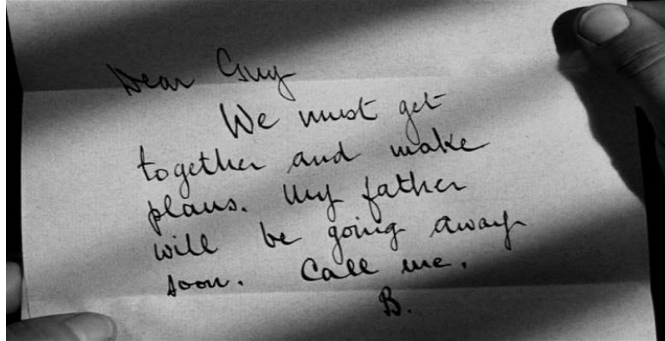 Dear Guy
We must get
together and make
plans. My father
will be going away
soon. Call me.
B.